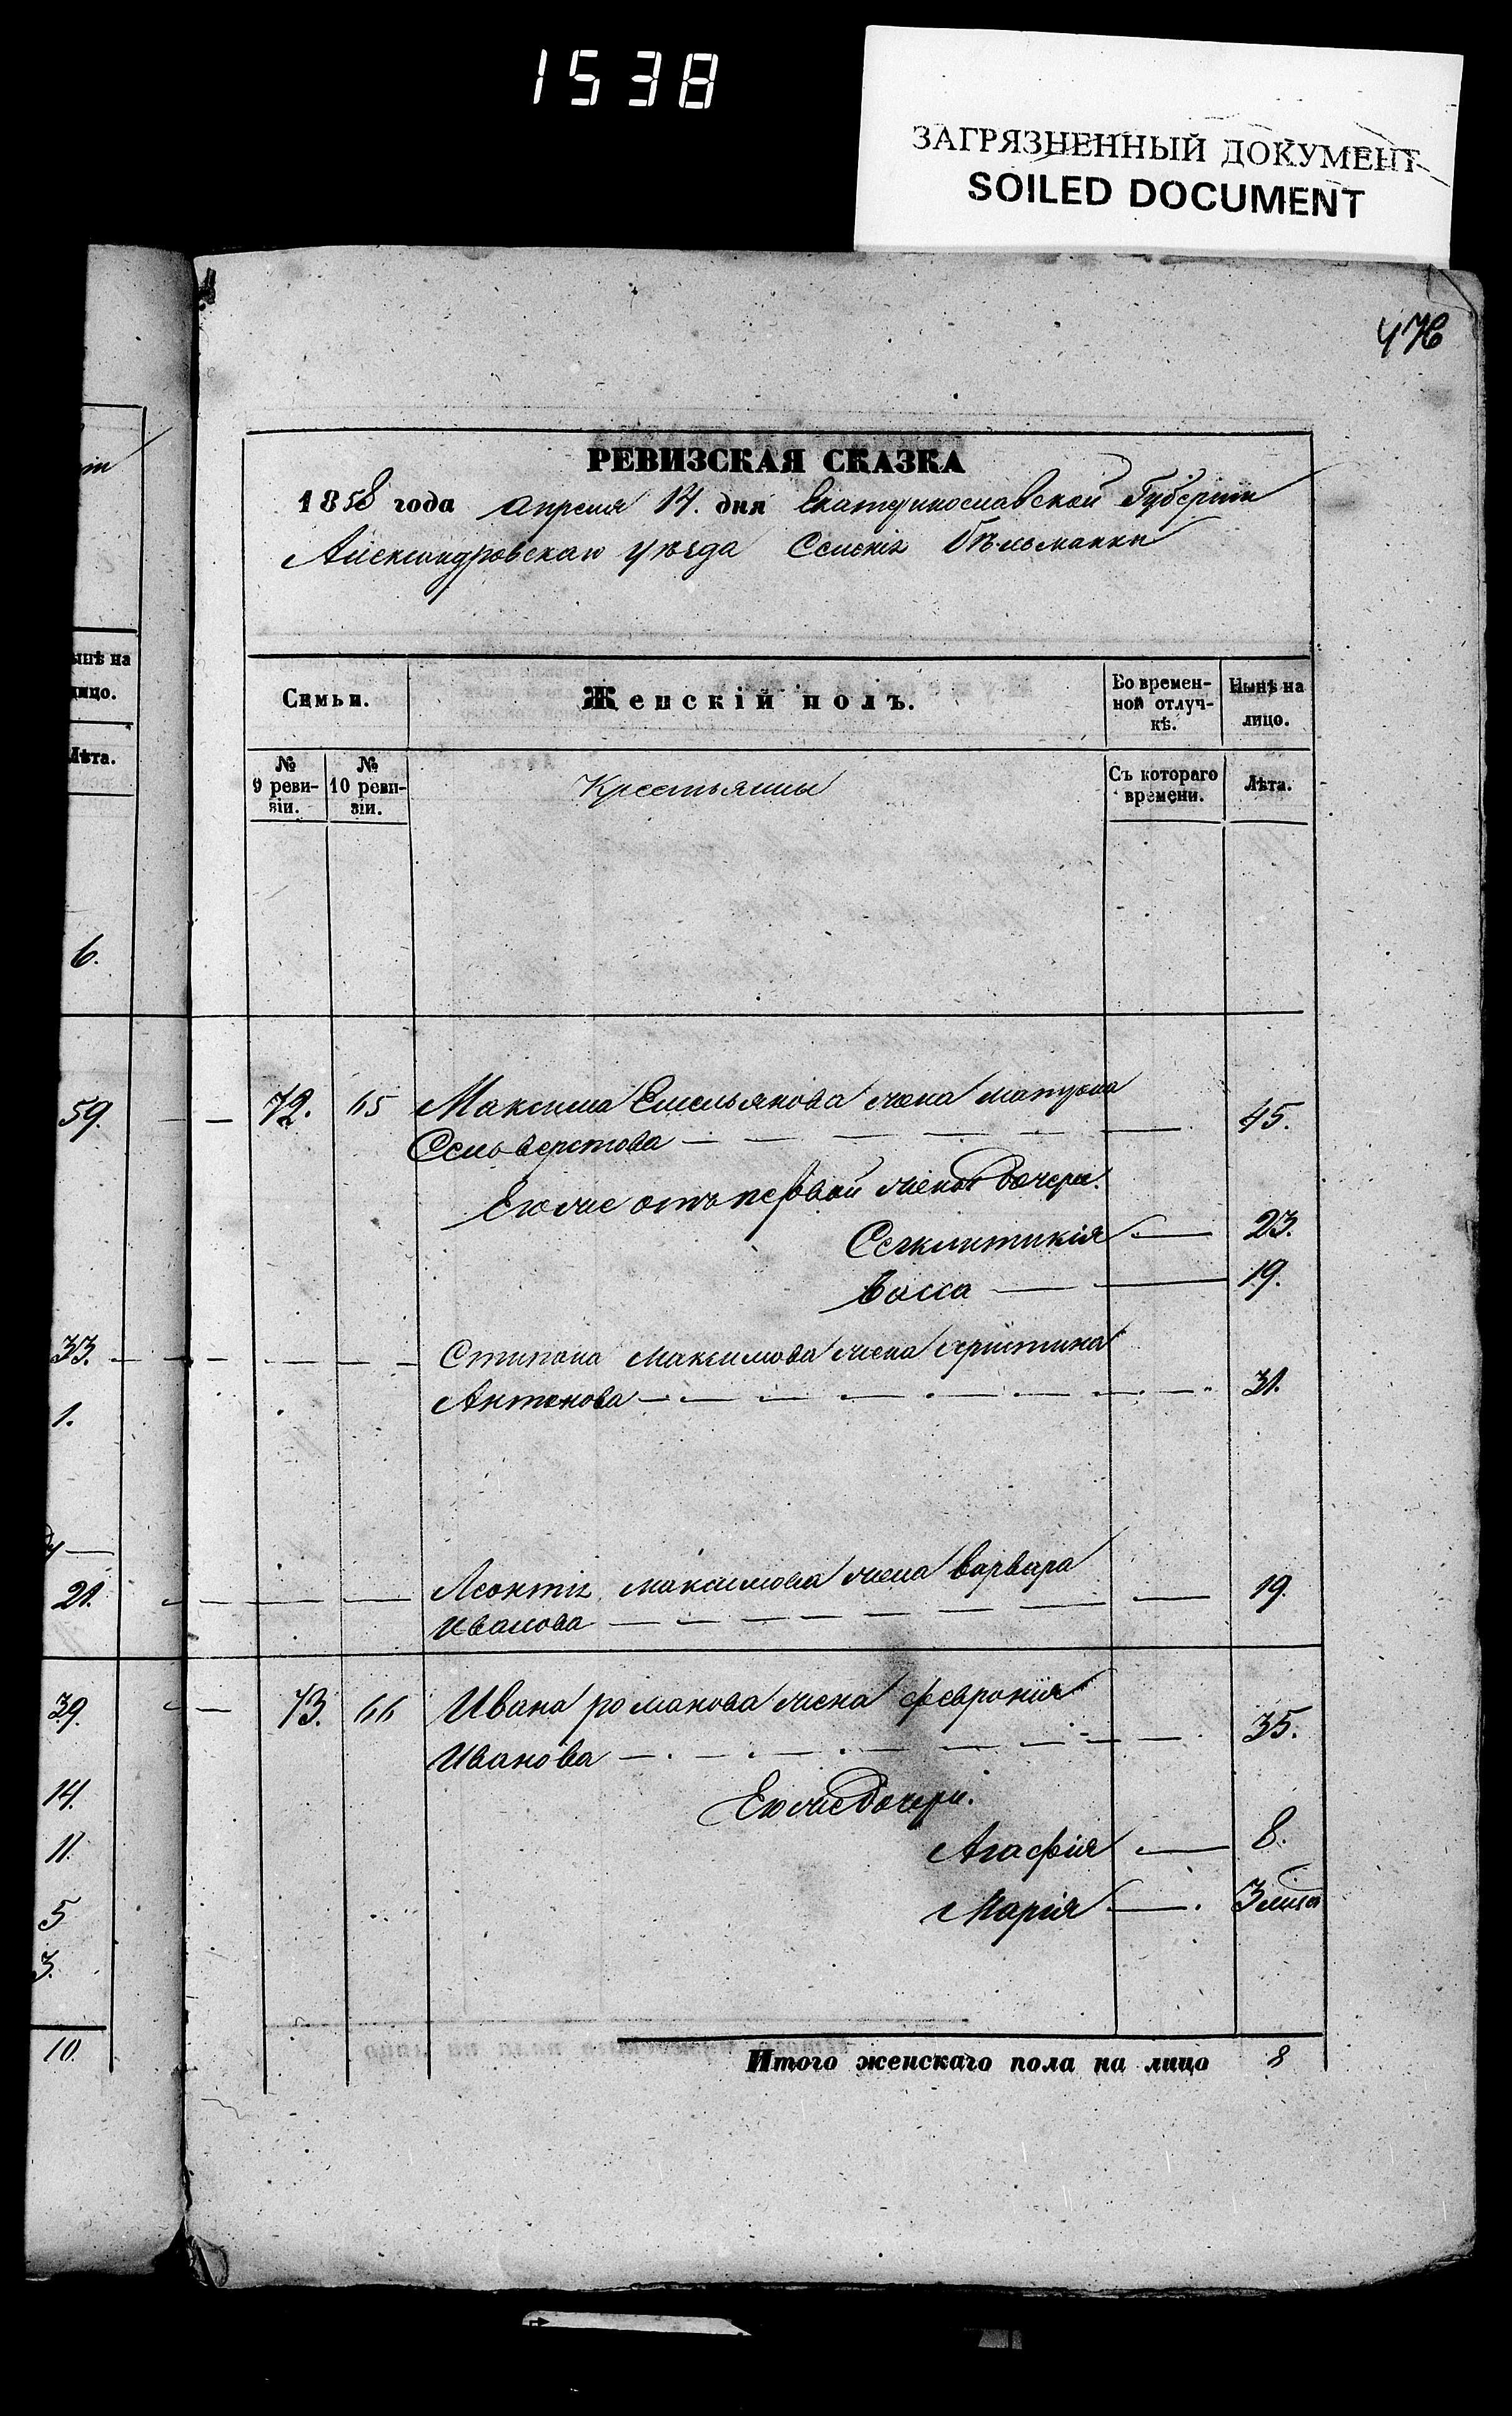 1538
ЗАГРЯЗНЕННЫЙ ДОКУМЕНТ
SOILED DOCUMENT
РЕВИЗСКАЯ СКАЗКА
1858 года апреля 14. дня Екатеринославской Губерніи
Александровскаго уѣзда Селенія Бѣльманки
Семьи.
Женскій полъ.
Во времен-
ной отлуч-
кѣ.
Нынѣ на
лицо.
№
9 реви-
зіи.
№
10 реви-
зіи.
Крестьянины
Съ котораго
времени.
Лѣта.
72. 65 Максима Емельянова жена матрона
Сельверстова 45.
Его же отъ первой жены дочери.
Сегклитикія 23.
Васса 19.
Стипана Максимова жена христина
Антонова 31.
Леонтія максимова жена варвара
Иванова 19.
73. 66 Ивана романова жена феврония
Иванова 35.
Его же дочери.
Агафія 8.
Марія 3
Итого женскаго пола на лицо 8
ынѣ на
лицо.
Лѣта.
6.
59.
33.
1.
21.
39.
14.
11.
5
3.
10.